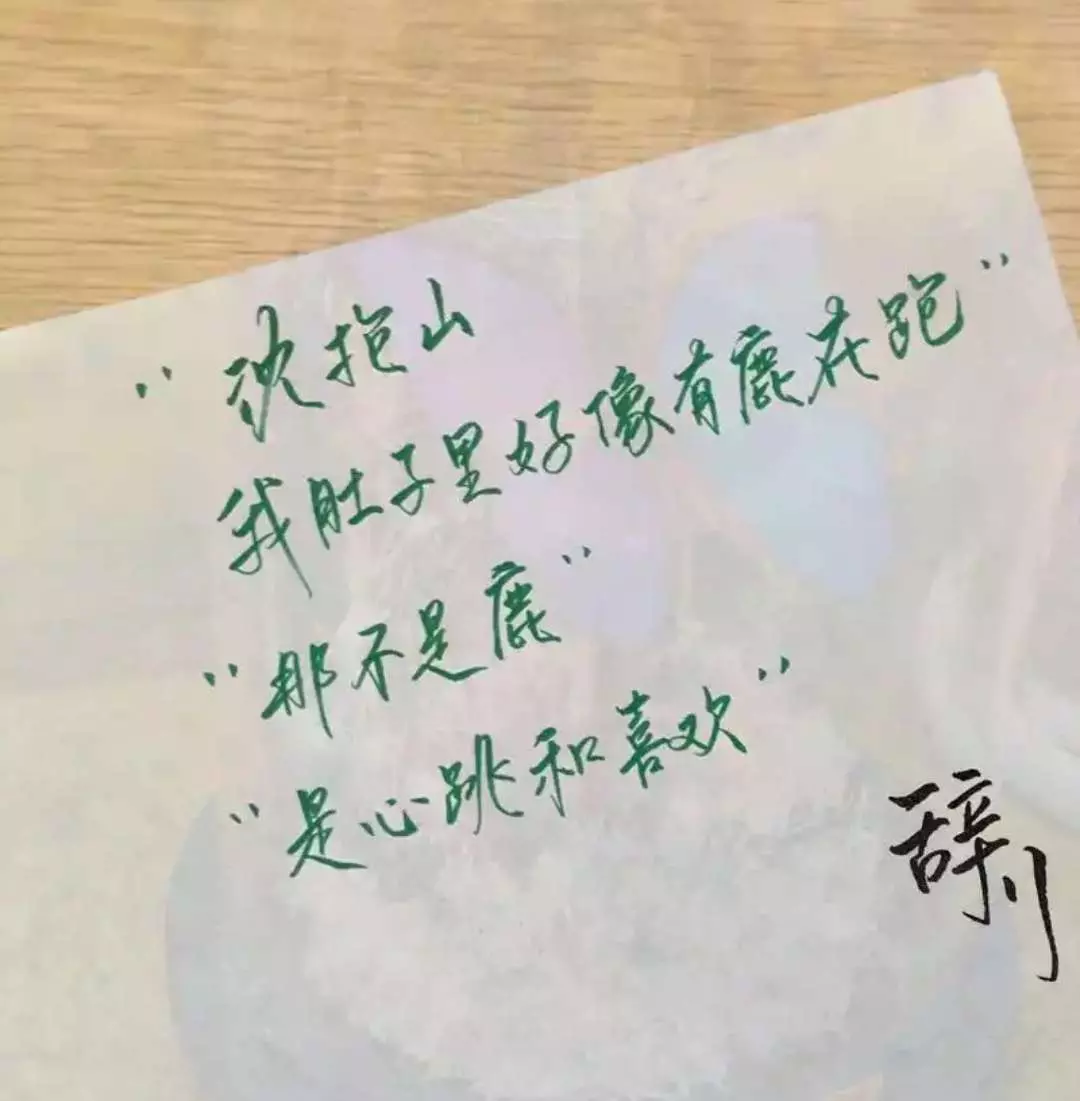 "沈抱山
我肚子里好像有鹿在跑"
"那不是鹿"
"是心跳和喜欢"
辞川